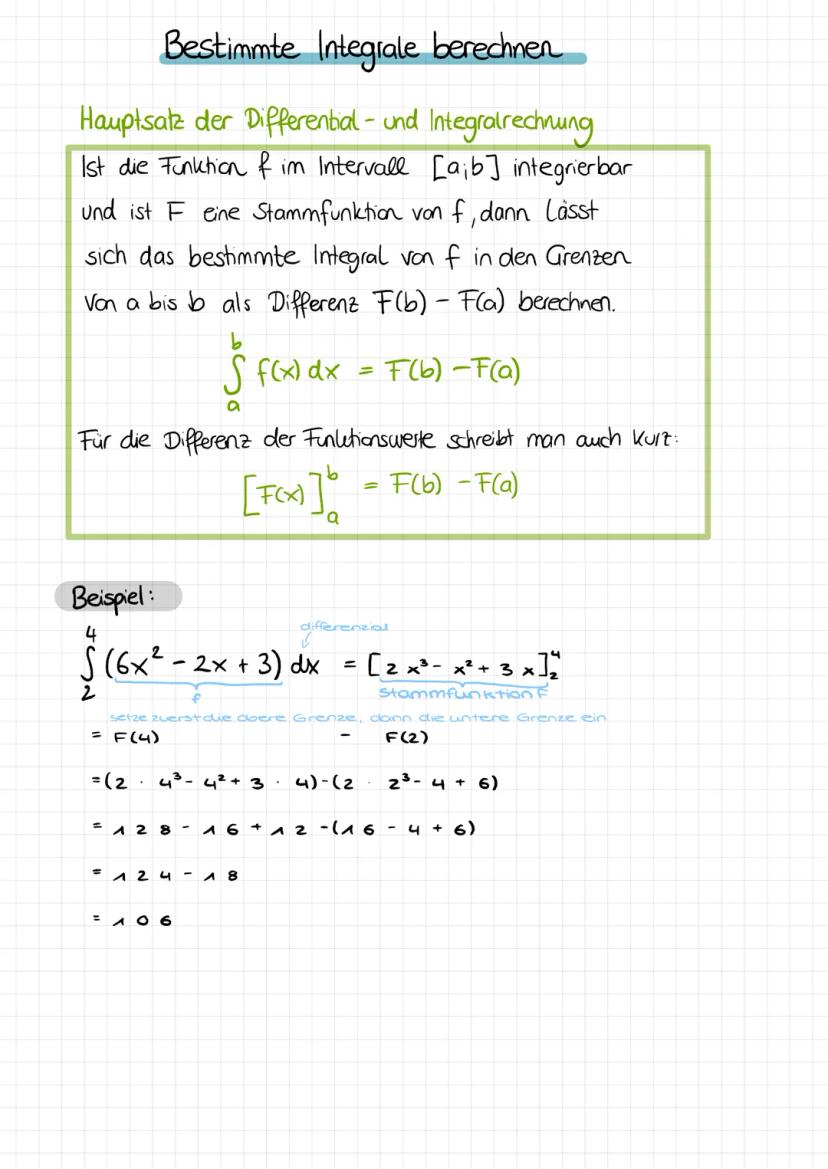 Bestimmte Integrale berechnen
Hauptsatz der Differential- und Integralrechnung
Ist die Funktion f im Intervall [a;b] integrierbar
und ist F eine Stammfunktion von f, dann lässt
sich das bestimmte Integral von f in den Grenzen
von a bis b als Differenz F(b) - F(a) berechnen.
∫ₐᵇ f(x) dx = F(b) - F(a)
Für die Differenz der Funktionswerte schreibt man auch kurz:
[F(x)]ₐᵇ = F(b) - F(a)
Beispiel:
differenzial
∫₂⁴ (6x² - 2x + 3) dx = [2x³ - x² + 3x]₂⁴
f Stammfunktion F
setze zuerst die obere Grenze, dann die untere Grenze ein
= F(4) - F(2)
= (2 · 4³ - 4² + 3 · 4) - (2 · 2³ - 4 + 6)
= 128 - 16 + 12 - (16 - 4 + 6)
= 124 - 18
= 106